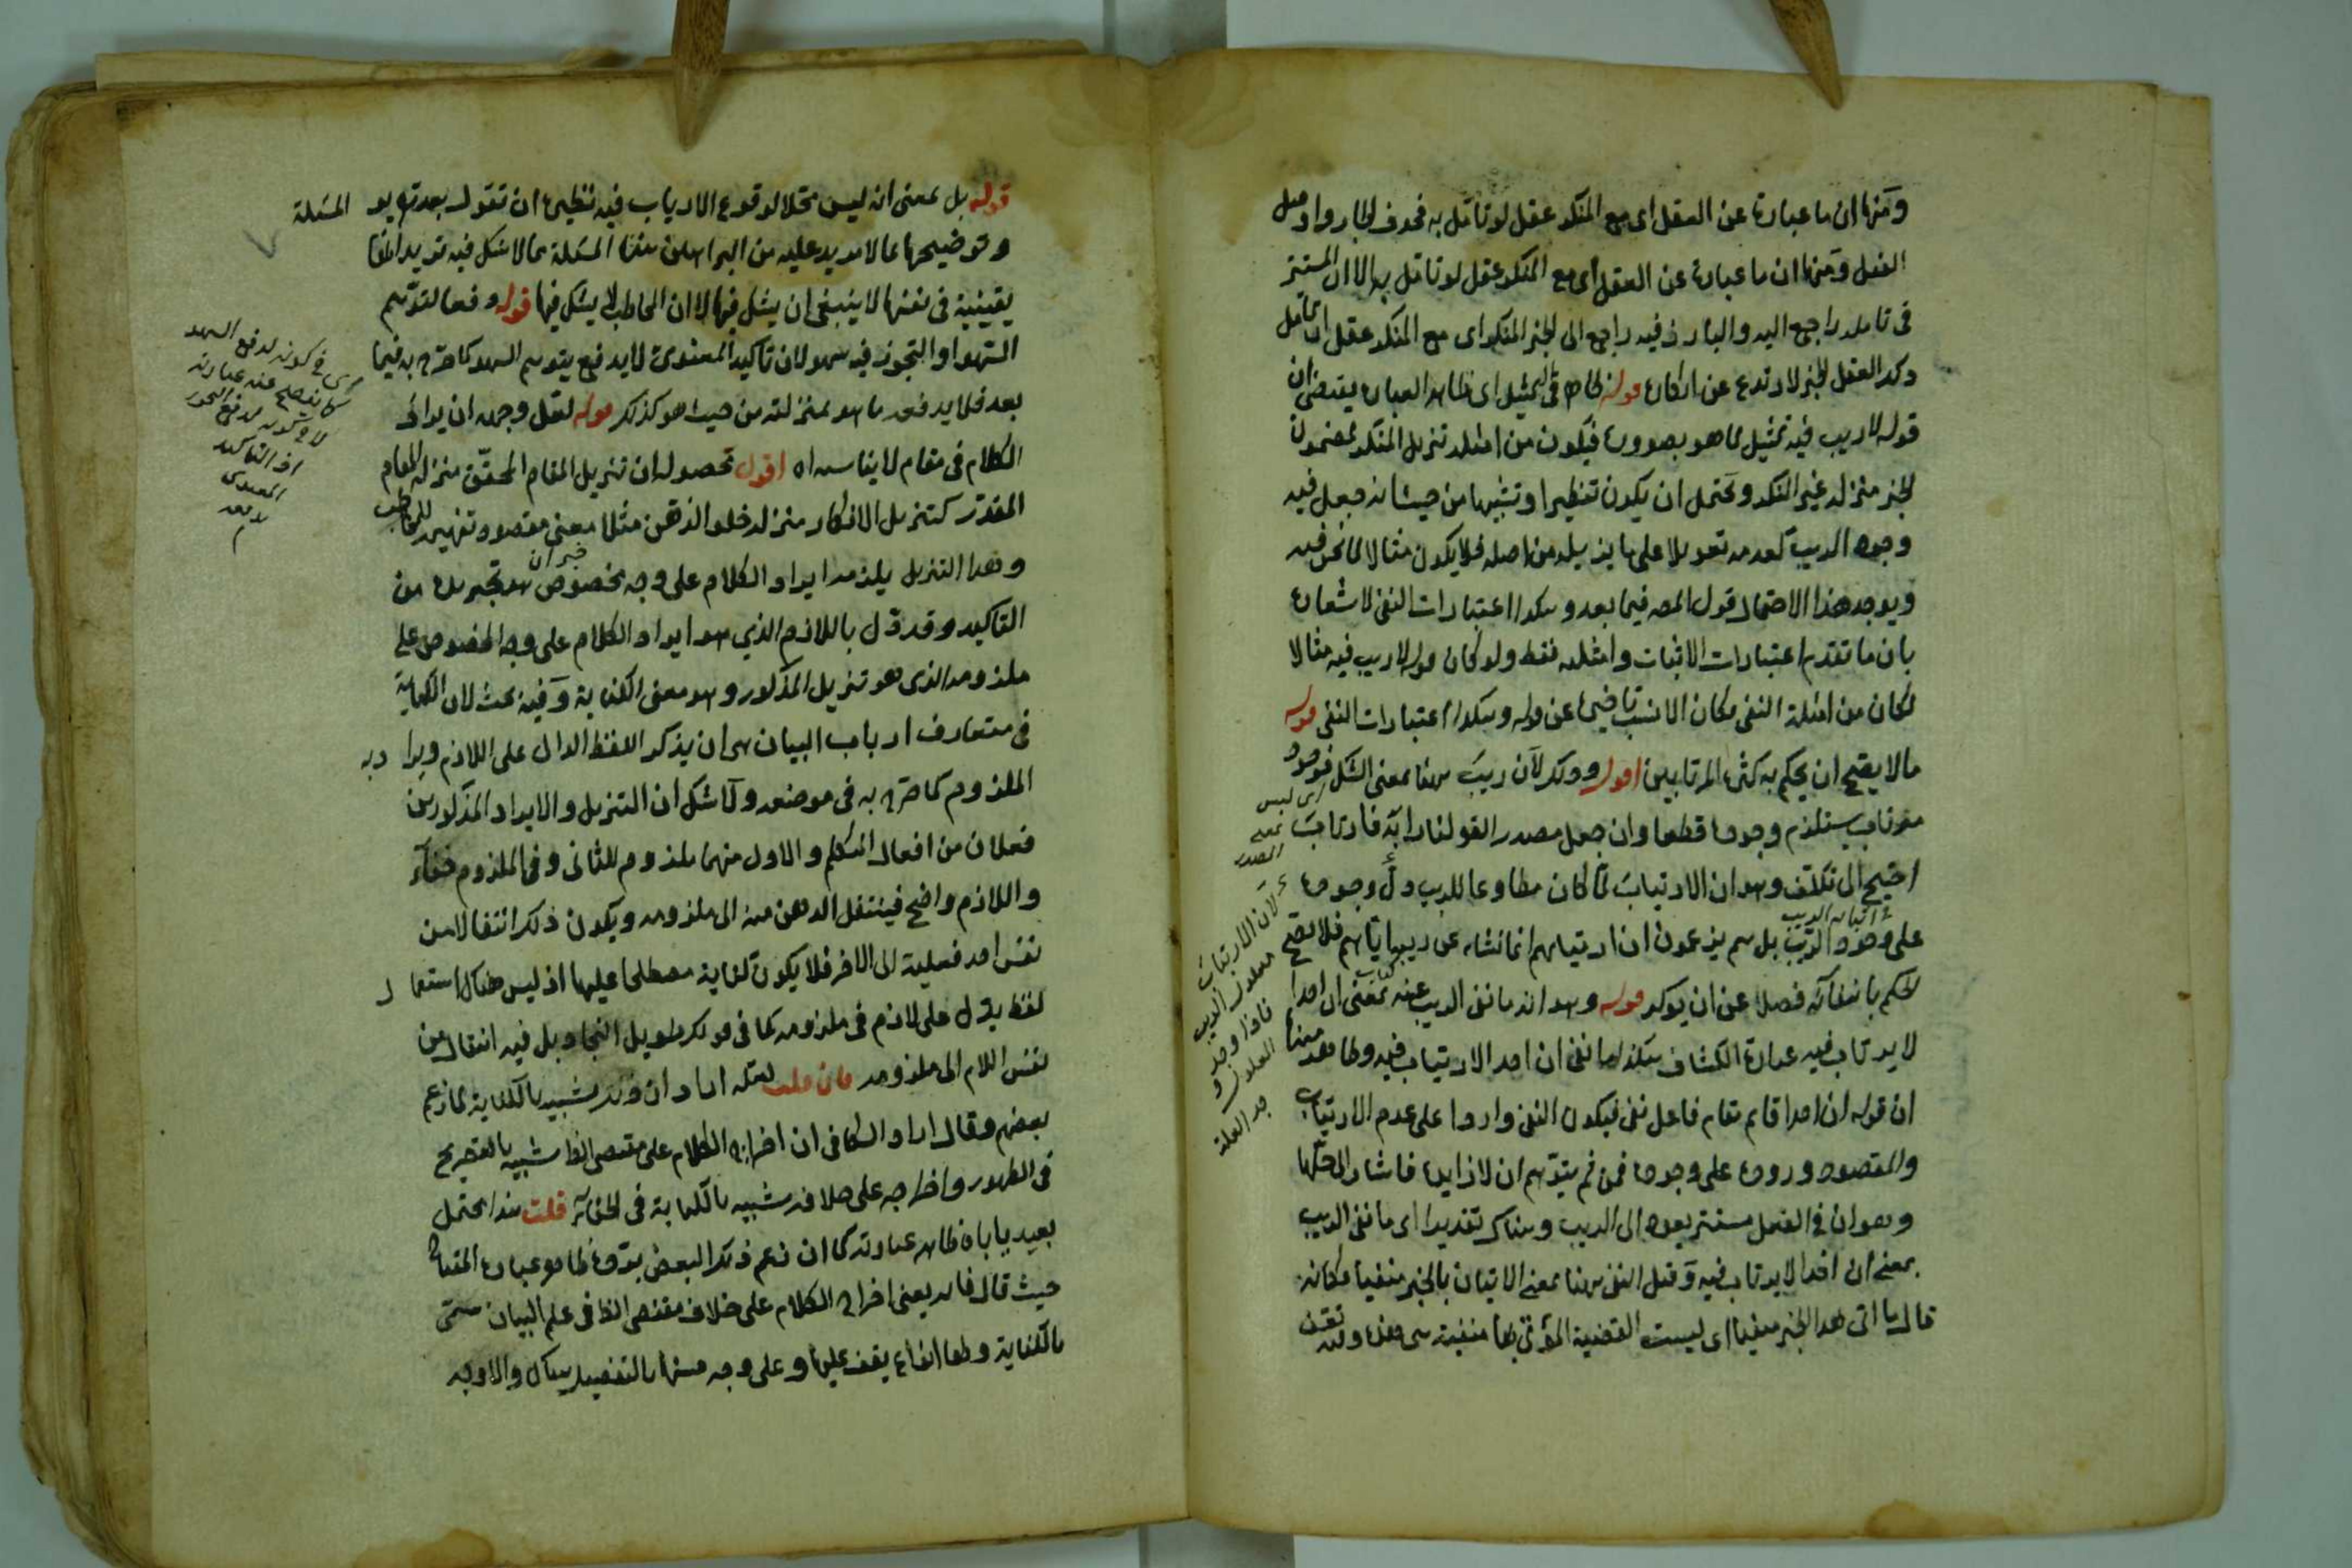 ومنها ان ما عبارة عن العقل اى مع المنكر عقل لو تأمل به فحذف الجار واوصل
الفعل ومنها ان ما عبارة عن العقل اى مع المنكر عقل لو تأمل به الا ان المستتر
فى تأمله راجع اليه والبارز فيه راجع الى الخبر المنكر اى مع المنكر عقل ان تأمل
ذلك العقل الخبر لارتدع عن انكاره قوله ظاهر فى التمثيل اى ظاهر العبارة يقتضى ان
قوله لا ريب فيه تمثيل لما هو بصدده فيكون من امثلة تنزيل المنكر لمضمون
الخبر منزلة غير المنكر ويحتمل ان يكون تنظيرا وتشبيها من حيث انه جعل فيه
وجود الريب كعدمه تعويلا على ما يزيله من اصله فلا يكون مثالا لما نحن فيه
ويؤيد هذا الاحتمال قول المص فيما بعد وهكذا اعتبارات النفى لاشعاره
بان ما تقدم اعتبارات الاثبات وامثلته فقط ولو كان قوله لا ريب فيه مثالا
لكان من امثلة النفى فكان الانسب تأخيره عن قوله وهكذا اعتبارات النفى قوله
مما لا يصح ان يحكم به لكثرة المرتابين اقول وذلك لان ريب ههنا بمعنى الشك فوجود
مرتاب يستلزم وجوده قطعا وان جعل مصدرا لقولنا رابه فارتاب
احتيج الى تكلف وهو ان الارتياب لما كان مطاوعا للريب دل وجوده
على وجود الريب بل هم يزعمون ان ارتيابهم انما نشاء عن ريبه اياهم فلا يصح
الحكم بانتفائه فضلا عن ان يؤكد قوله وهو انه ما نفى الريب عنه بمعنى ان احدا
لا يرتاب فيه عبارة الكشاف هكذا ما نفى ان احدا لا يرتاب فيه
ان قوله ان احدا قائم مقام فاعل نفى فيكون النفى واردا على عدم الارتياب
والمقصود وروده على وجوده فمن ثم يتوهم ان لا زايدة فاشار الى حلها
وهو ان فى الفعل مستتر يعود الى الريب وهناك تقديرا اى ما نفى الريب
بمعنى ان احدا لا يرتاب فيه وقيل النفى ههنا بمعنى الاتيان بالخبر منفيا فكانه
قال ما اتى بهذا الخبر منفيا اى ليست القضية المؤتى بها منفية هى هذه
اى ليس
بمعنى
المصدر
لان الارتياب
معلول الريب
فاذا وجد
المعلول
وجد العلة
قوله بل بمعنى انه ليس محلا لوقوع الارتياب فيه نظيره ان تقول بعد تقرير المسئلة
وتوضيحها بما لا مزيد عليه من البراهين هذا المسئلة مما لا شك فيه تريد انها
يقينية فى نفسها لا ينبغى ان يشك فيها الا ان المخاطب لا يشك فيها قوله دفعا لتوهم
السهو او التجوز فيه سهو لان تأكيد المعنوى لا يدفع توهم السهو كما صرح به فيما
بعد فلا يدفعه ما هو بمنزلته من حيث هو كذلك قوله لعل وجهه ان يراد
الكلام فى مقام لا يناسبه اه اقول محصوله ان تنزيل المقام المحقق منزلة المقام
المقدر كتنزيل الانكار منزلة خلو الذهن مثلا معنى مقصود تفهيمه للمخاطب
وهذا التنزيل يلزمه ايراد الكلام على وجه مخصوص هو تجريده من
التأكيد وقد دل باللازم الذي هو ايراد الكلام على وجه المخصوص على
ملزومه الذى هو تنزيل المذكور وهو معنى الكناية وفيه بحث لان الكناية
فى متعارف ارباب البيان هى ان يذكر اللفظ الدال على اللازم ويراد به
الملزوم كما صرح به فى موضعه ولا شك ان التنزيل والايراد المذكورين
فعلان من افعال المتكلم والاول منهما ملزوم للثانى وفى الملزوم خفاء
واللازم واضح فينتقل الذهن منه الى ملزومه ويكون ذلك انتقالا من
نفس احد فعليه الى الاخر فلا يكون كناية مصطلحا عليها اذ ليس هناك استعمال
لفظ يدل على لازم فى ملزومه كما فى قولك طويل النجاد بل فيه انتقال من
نفس اللازم الى ملزومه فان قلت لعله اراد انه شبيه بالكناية كما زعم
بعضهم وقال اراد السكاكى ان اخراج الكلام على مقتضى الظا شبيه بالتصريح
فى الظهور واخراجه على خلافه شبيه بالكناية فى الخفاء قلت هذا محتمل
بعيد يأباه ظاهر عبارته كما ان زعم ذلك البعض يرده ظاهر عبارة المفتاح
حيث قال فانه يعنى اخراج الكلام على خلاف مقتضى الظا فى علم البيان يسمى
بالكناية ولها انواع يقف عليها وعلى وجه حسنها بالتفصيل هناك والاوجه
خبر ان
اى فى كونه لدفع السهو
كما يفصح عنه عبارته
لا فى كونه لدفع التجوز
اذ التأكيد
المعنوى
يدفعه